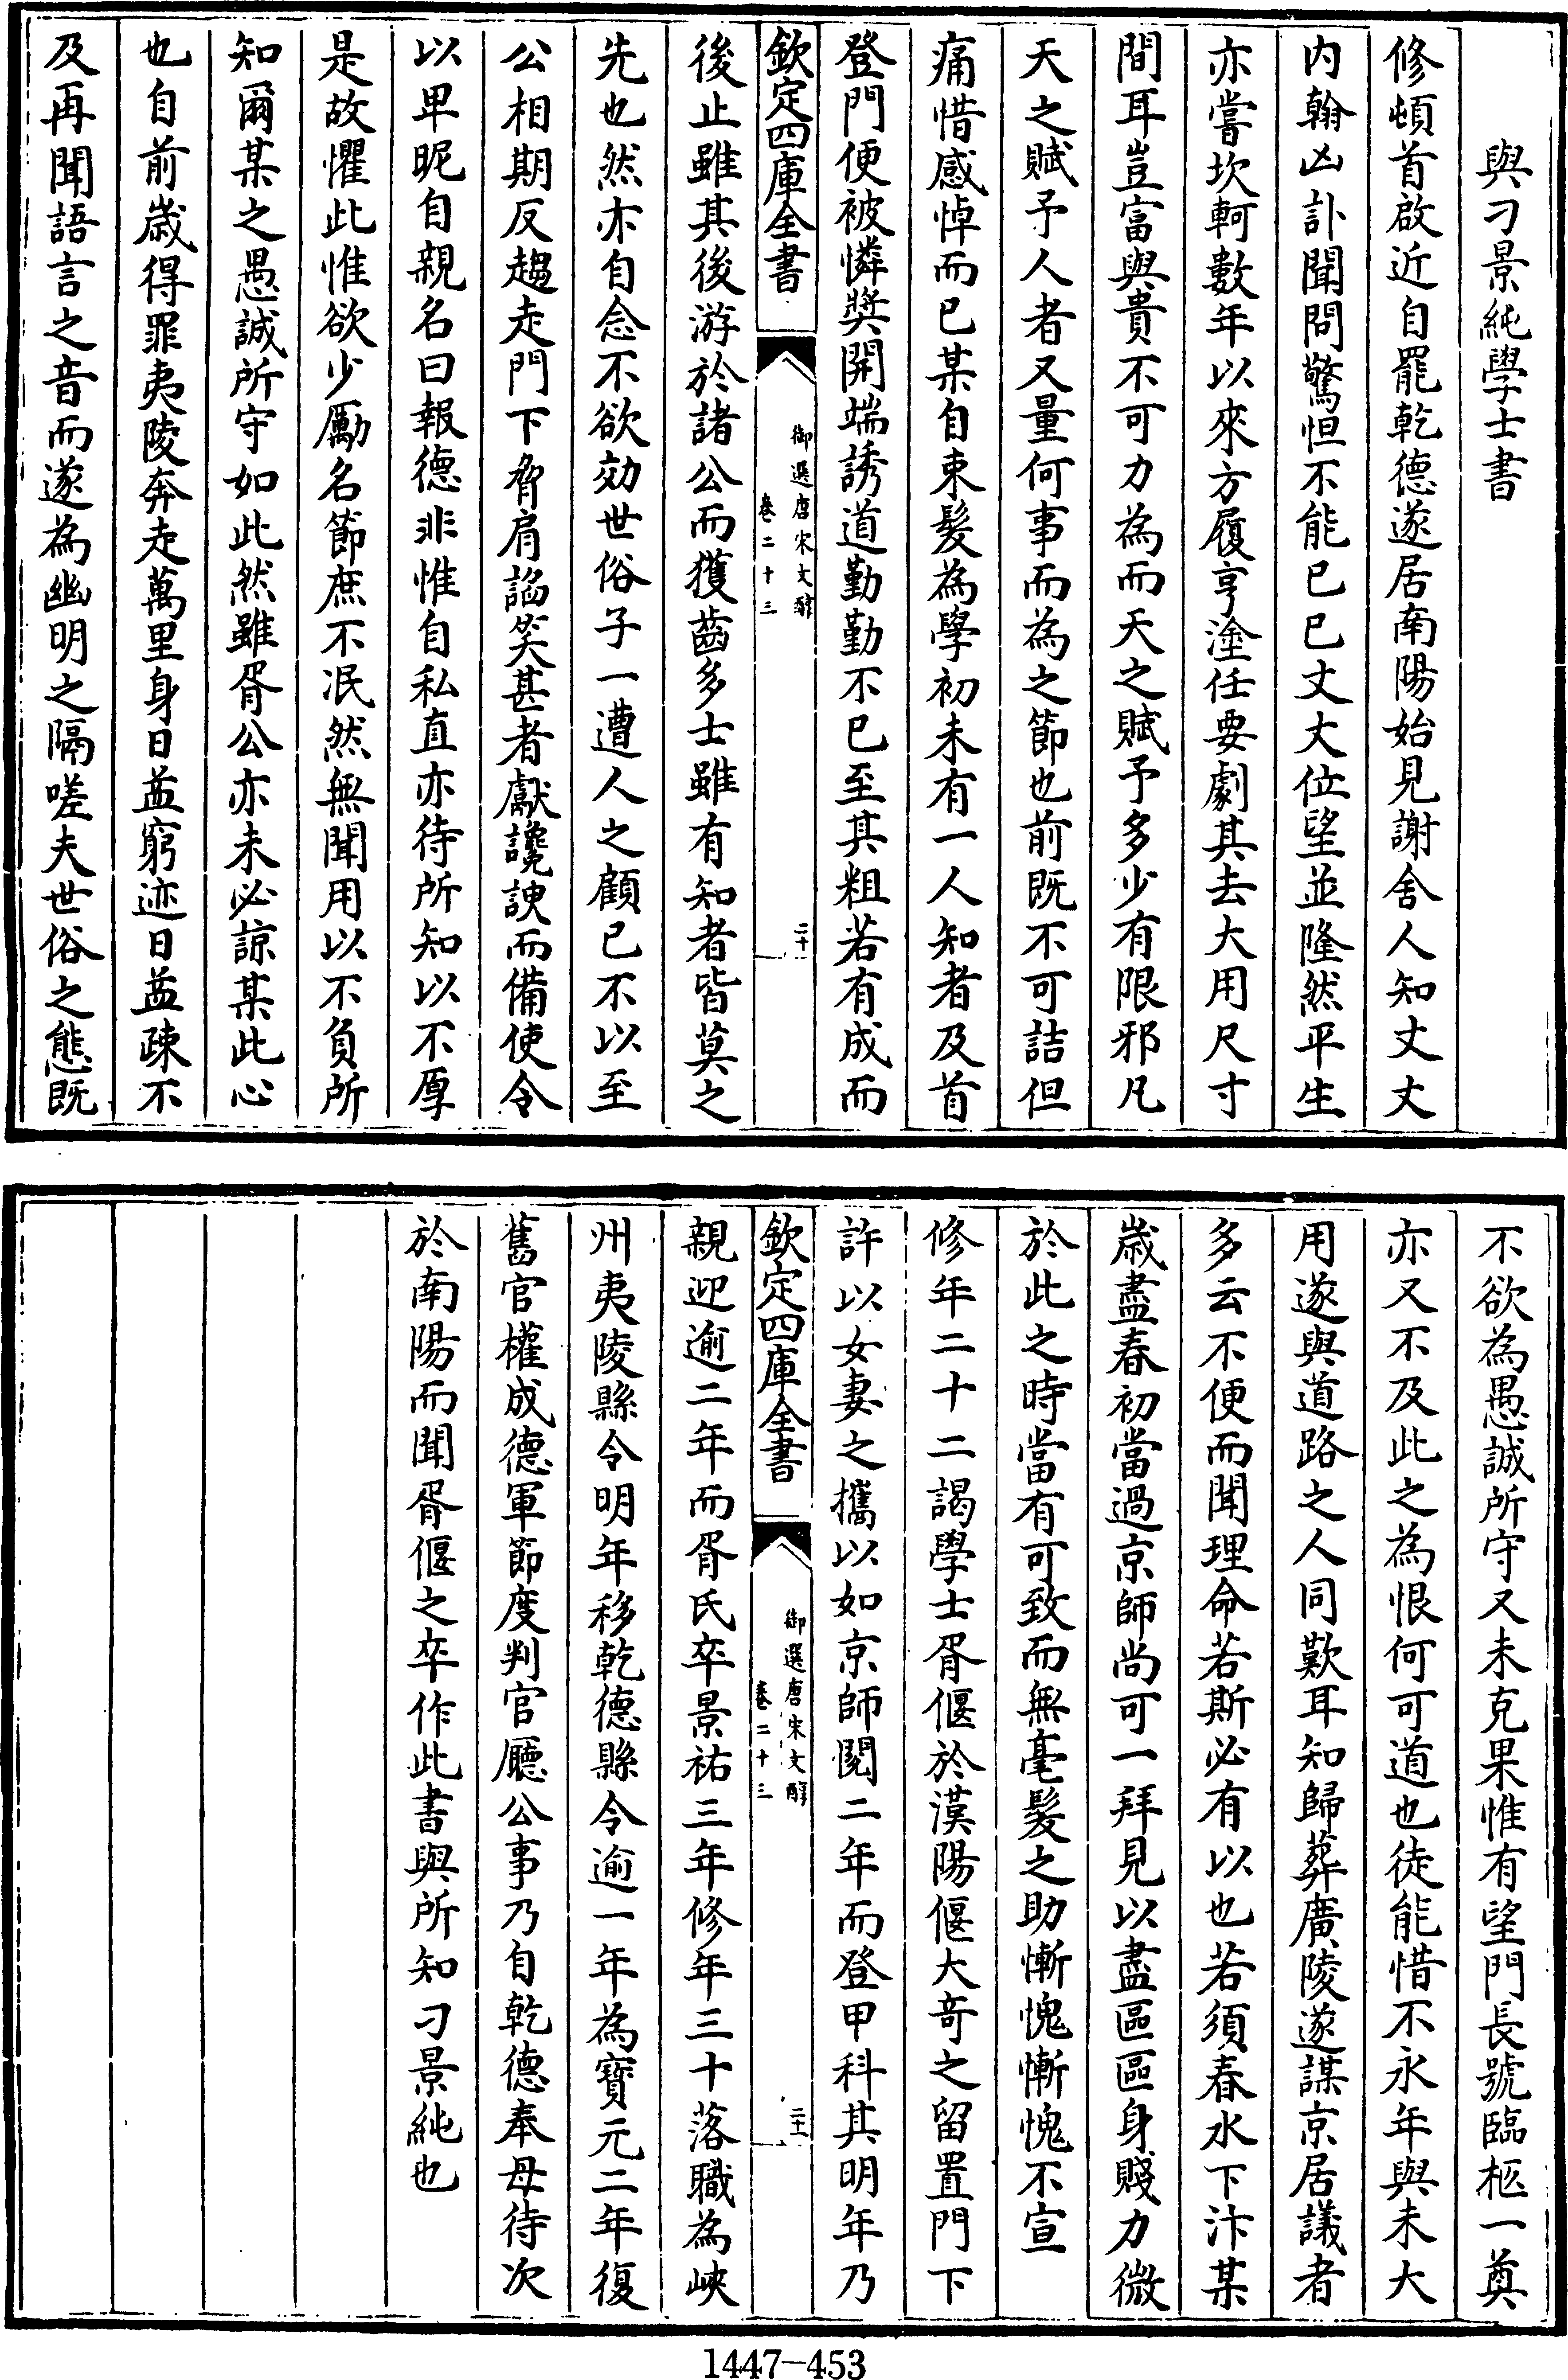 與刁景純學士書
修頓首啟近自罷乾德遂居南陽始見謝舍人知丈丈
内翰凶訃聞問驚怛不能已已丈丈位望並隆然平生
亦嘗坎軻數年以來方履亨塗任要劇其去大用尺寸
間耳豈富與貴不可力為而天之賦予多少有限邪凡
天之賦予人者又量何事而為之節也前既不可詰但
痛惜感悼而已某自束髮為學初未有一人知者及首
登門便被憐奬開端誘道勤勤不已至其粗若有成而
欽定四庫全書
御選唐宋文醇
卷二十三
二十
後止雖其後游於諸公而獲齒多士雖有知者皆莫之
先也然亦自念不欲効世俗子一遭人之顧已不以至
公相期反趨走門下脅肩諂笑甚者獻讒諛而備使令
以卑昵自親名曰報德非惟自私直亦待所知以不厚
是故懼此惟欲少勵名節庶不泯然無聞用以不負所
知爾某之愚誠所守如此然雖胥公亦未必諒某此心
也自前歲得罪夷陵奔走萬里身日益窮迹日益疎不
及再聞語言之音而遂為幽明之隔嗟夫世俗之態既
不欲為愚誠所守又未克果惟有望門長號臨柩一奠
亦又不及此之為恨何可道也徒能惜不永年與未大
用遂與道路之人同歎耳知歸葬廣陵遂謀京居議者
多云不便而聞理命若斯必有以也若須春水下汴某
歲盡春初當過京師尚可一拜見以盡區區身賤力微
於此之時當有可致而無毫髮之助慚愧慚愧不宣
修年二十二謁學士胥偃於漢陽偃大奇之留置門下
許以女妻之攜以如京師閱二年而登甲科其明年乃
欽定四庫全書
御選唐宋文醇
卷二十三
二十一
親迎逾二年而胥氏卒景祐三年修年三十落職為峽
州夷陵縣令明年移乾德縣令逾一年為寶元二年復
舊官權成德軍節度判官廳公事乃自乾德奉母待次
於南陽而聞胥偃之卒作此書與所知刁景純也
1447-453